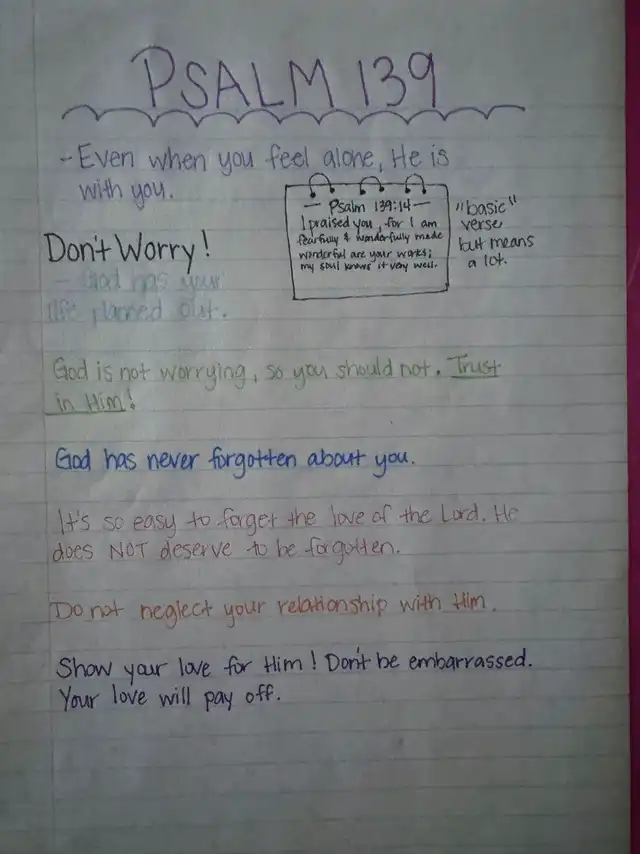 PSALM 139
- Even when you feel alone, He is
with you.
- Psalm 139:14 -
I praised you, for I am
fearfully & wonderfully made
wonderful are your works;
my soul knows it very well.
"basic"
verse
but means
a lot.
Don't Worry!
- God has your
life planned out.
God is not worrying, so you should not. Trust
in Him!
God has never forgotten about you.
It's so easy to forget the love of the Lord. He
does NOT deserve to be forgotten.
Do not neglect your relationship with Him.
Show your love for Him! Don't be embarrassed.
Your love will pay off.